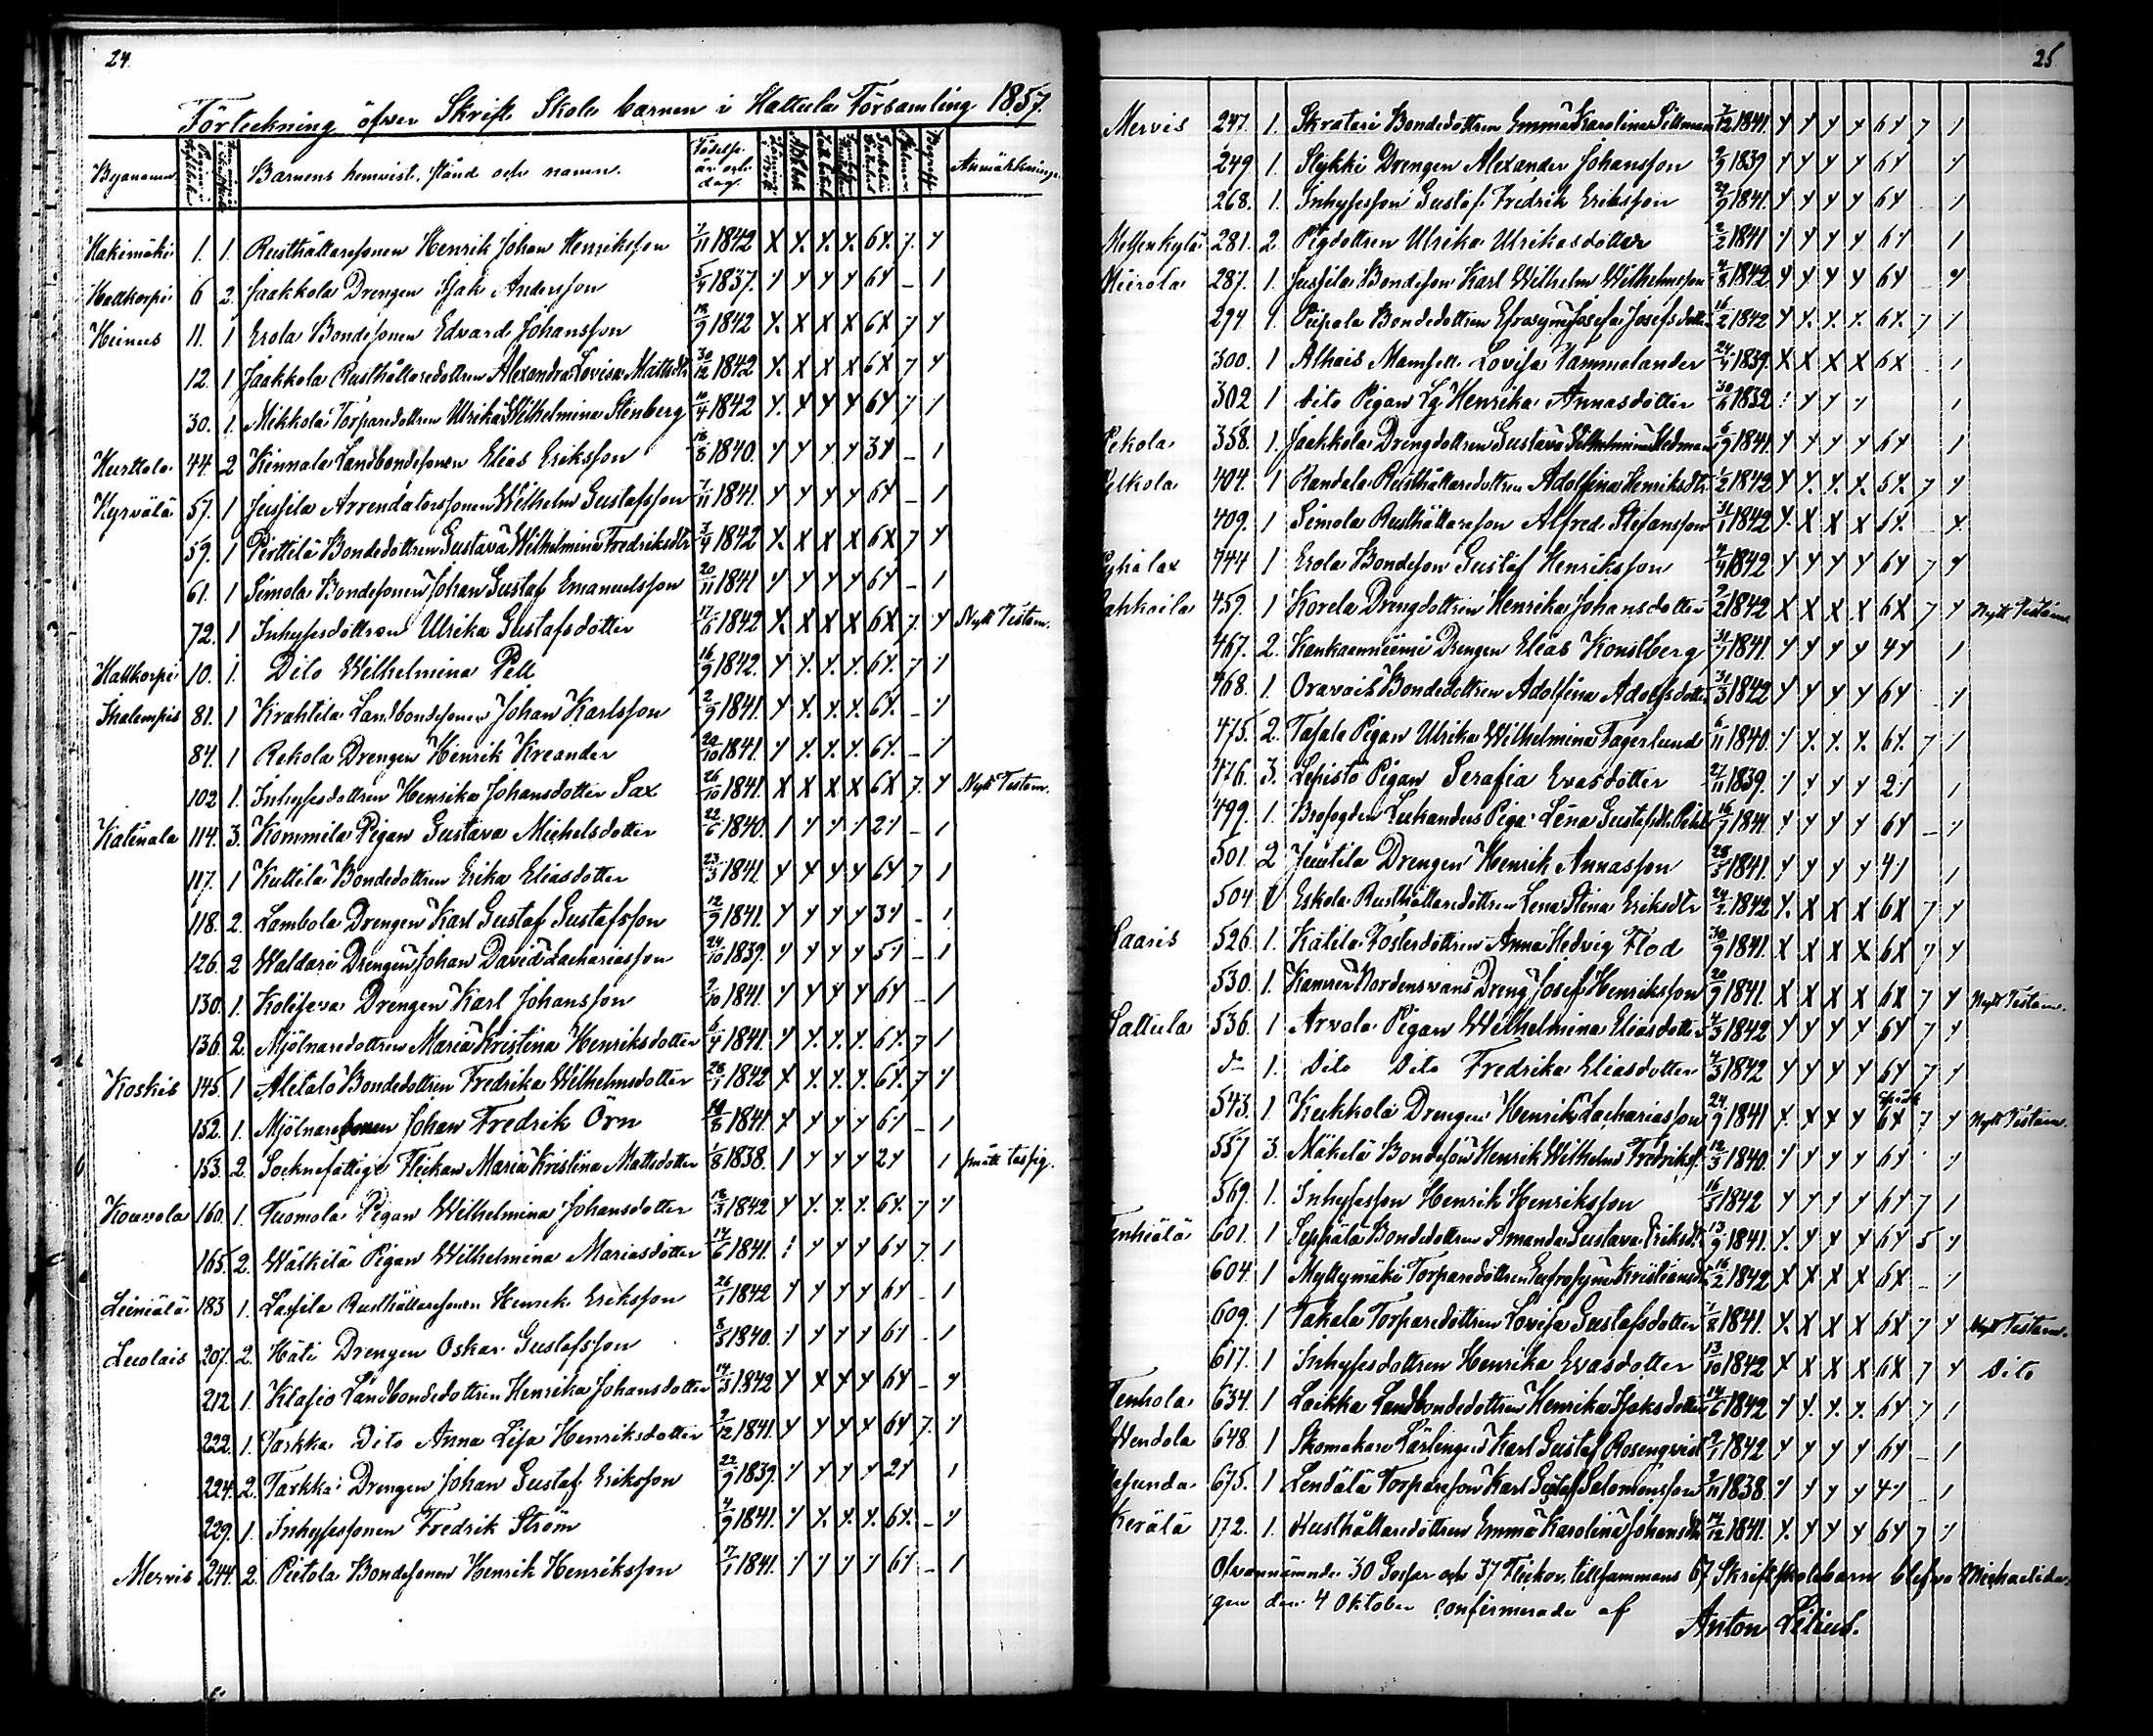 24.
Förteckning öfver Skrift Skole barnen i Hattula Församling 1857.
Byanamn. Barnens hemvist, stånd och namn. Födelse år och dag. Anmärkning.
Hakimäki 1. 1. Rusthållaresonen Henrik Johan Henriksson 7/11 1842 X X. X. X. 6X. 7. Y
Hattkorpi 6 2. Jaakkola Drengen Isak Andersson 5/4 1837. Y Y Y Y 6Y – 1
Heinus 11. 1 Erola Bondesonen Edvard Johansson 1842 X. X X X 6X 7 Y
12. 1 Jaakkola Rusthållaredottren Alexandra Lovisa Mattsdtr 30/12 1842 X. X X X 6X 7 Y
30. 1. Mikkola Torparedottren Ulrika Wilhelmina Stenberg 10/4 1842 Y. Y Y Y 6Y 7 1
Hurttola 44. 2 Kinnala Landbondesonen Elias Eriksson 1840. Y Y Y Y 3Y – 1
Kyrvälä 57. 1 Jussila Arrendatorssonen Wilhelm Gustafsson 7/11 1841. Y Y Y Y 6Y – 1
59. 1 Perttilä Bondedottren Gustava Wilhelmina Fredriksdtr 3/4 1842 X. X X X 6X 7 Y
61. 1 Simola Bondesonen Johan Gustaf Emanuelsson 20/11 1841 Y Y Y Y 6Y – 1
72. 1 Inhysesdottren Ulrika Gustafsdotter 17/6 1842 X. X X X 6X 7. Y Nytt Testam.
Hattkorpi 10. 1. Dito Wilhelmina Pell 16/9 1842. Y Y. Y. Y. 6Y. 7 Y
Ihalempis 81. 1 Krahtila Landbondesonen Johan Karlsson 2/9 1841. Y Y. Y. Y. 6Y. – Y
84. 1 Rekola Drengen Henrik Kreander 20/10 1841. Y Y. Y. Y. 6Y. – Y
102 1. Inhysesdottren Henrika Johansdotter Sax 26/10 1841. X X X X 6X 7. Y Nytt Testam.
Katinala 114. 3. Kommila Pigan Gustava Michelsdotter 22/6 1840. 1 Y Y Y 2Y – 1
117. 1 Kuttila Bondedottren Erika Eliasdotter 23/3 1841. Y Y Y Y 6Y 7 1
118. 2. Lambola Drengen Karl Gustaf Gustafsson 12/9 1841. Y Y Y Y 3Y – 1
126. 2 Waldari Drengen Johan David Zachariasson 24/10 1839. Y Y Y Y 5Y – 1
130. 1. Drengen Karl Johansson 1841. Y Y Y Y 6Y – 1
136. 2. Mjölnaredottren Maria Kristina Henriksdotter 6/4 1841. Y Y. Y. Y. 6Y. 7 1
Koskis 145. 1 Aletalo Bondedottren Fredrika Wilhelmsdotter 28/1 1842 X Y. Y. Y. 6Y. 7 Y
152. 1. Mjölnaresonen Johan Fredrik Örn 1841. Y Y Y Y 6Y – 1
153. 2. Socknefattige Flickan Maria Kristina Mattsdotter 1/8 1838. 1 Y Y Y 2Y 1
Kouvola 160. 1. Tuomola Pigan Wilhelmina Johansdotter 18/3 1842 Y Y. Y. Y. 6Y. 7 Y
165. 2. Wälkilä Pigan Wilhelmina Mariasdotter 14/6 1841. Y Y Y 6Y 7. 1
Leiniälä 183 1. Lassila Rusthållaresonen Henrik Eriksson 26/1 1842 Y Y Y Y 6Y – 1
Luolais 207. 2. Häti Drengen Oskar Gustafsson 8/3 1840. Y Y Y Y 6Y – 1
212. 1. Klasio Landbondedottren Henrika Johansdotter 14/3 1842 Y X Y Y 6Y – Y
222. 1. Tarkka Dito Anna Lisa Henriksdotter 2/12 1841. Y Y Y Y 6Y 7. Y
224. 2. Tarkka Drengen Johan Gustaf Eriksson 22/9 1839. Y Y Y Y 2Y 1
229. 1. Inhysesonen Fredrik Ström 4/9 1841. Y Y. Y. Y. 6Y. – Y
Mervis 244. 2. Pietola Bondesonen Henrik Henriksson 1841. Y Y Y Y 6Y – 1
25
Mervis 247. 1. Skrätari Bondedottren Emma Karolina 7/12 1841. Y Y Y Y 6Y 7 1
249 1. Drengen Alexander Johansson 1839 Y Y Y Y 6Y Y
268. 1. Inhysesson Gustaf Fredrik Eriksson 1841. Y Y Y Y 6Y – Y
281. 2. Pigdottren Ulrika Ulrikasdotter 2/2 1841 Y Y Y Y 6Y 1
Mierola 287. 1. Jussila Bondeson Karl Wilhelm Wilhelmsson 4/8 1842 Y Y Y Y 6Y – Y
294 1. Piipola Bondedottren Efrosyne Josefa Josefsdotter 16/2 1842 Y Y. Y. Y. 6Y. 7 1
300. 1 Alhais Mamsell Lovisa Tammelander 24/4 1839. X X X X 6X 1
302 1 dito Pigan Henrika Annasdotter 1832 Y Y Y 1
Pekola 358. 1. Jaakkola Drengdottren Gustava Wilhelmina Hedman 6/9 1841. Y Y Y Y 6Y 1
404. 1 Randala Rusthållaredottren Adolfina Henriksdtr 1/2 1842 Y Y. Y. Y. 5Y. 7 Y
409. 1 Simola Rusthållareson Alfred Stefansson 31/1 1842 Y. X X X 6X. X
444 1 Erola Bondeson Gustaf Henriksson 1842 Y Y Y Y 6Y 7 Y
459. 1 Korela Drengdottren Henrika Johansdotter 1842 X X X X 6X 7 Y Nytt Testam.
467. 2. Kankaanniemi Drengen Elias Konstberg 1841. Y Y Y Y 4Y 1
468. 1. Oravais Bondedottren Adolfina Adolfsdotter 31/3 1842 Y Y Y Y 6Y – 1
475. 2. Tafala Pigan Ulrika Wilhelmina Fagerlund 6/11 1840. Y Y. Y. Y. 6Y. 7 1
476. 3. Lepistö Pigan Serafia Evasdotter 27/11 1839. Y Y Y Y 2Y 1
499. 1. Brofogden Lukanders Piga Lena Gustafsdtr 1841. Y Y Y Y 6Y – Y
501. 2 Juutila Drengen Henrik Annasson 28/3 1841. Y Y Y Y 4Y 1
504 1 Eskola Rusthållaredottren Lena Stina Eriksdtr 24/2 1842 Y. X X X 6X 7 Y
Saaris 526. 1. Katila Fosterdottren Anna Hedvig Flod 30/9 1841. X X X X 6X 7 Y
530. 1. Kamrer Nordensvans Dreng Josef Henriksson 20/9 1841. X X X X 6X 7 Y Nytt Testam.
Sattula 536. 1 Arvola Pigan Wilhelmina Eliasdotter 4/3 1842 Y Y Y Y 6Y 7 Y
do 1. Dito Dito Fredrika Eliasdotter 4/3 1842 Y Y Y Y 6Y 7 Y
543. 1. Kukkola Drengen Henrik Zachariasson 24/9 1841 X Y Y Y 6X 7 Y Nytt Testam.
557 3. Mäkelä Bondeson Henrik Wilhelm Fredrikss. 12/3 1840. Y Y Y Y 6Y Y
569. 1. Inhysesson Henrik Henriksson 16/5 1842 Y Y Y Y 6Y 7 1
Tenhiälä 601. 1 Seppälä Bondedottren Amanda Gustava Eriksdtr 13/9 1841. Y. Y Y Y 6Y 5 Y
604. 1 Myllymäki Torparedottren Eufrosyne Kristiansdtr 16/2 1842 X X X X 6X – 1
609. 1 Takala Torparedottren Lovisa Gustafsdotter 1/8 1841. X. X X X 6X 7 Y Nytt Testam.
617. 1 Inhysesdottren Henrika Evasdotter 13/10 1842 X X X X 6X 7 Y Dito
Tenhola 634. 1 Laikka Landbondedottren Henrika Isaksdotter 14/6 1842 Y Y. Y. Y. 6Y 7 1
Wendola 648. 1 Skomakare Lärlingen Karl Gustaf Rosenqvist 1842 Y Y Y Y 6Y – 1
675. 1 Lendälä Torpareson Karl Gustaf Salomonsson 2/11 1838. Y Y Y Y 4Y 1
172. 1. Rusthållaredottren Emma Karolina Johansdtr 14/12 1841. Y. Y Y Y 6Y 7 Y
Ofvannämnde 30 Gossar och 37 Flickor, tillsammans 67 Skriftskolebarn blefvo Michaelida-
gen den 4 Oktober confirmerade af
Anton Lilius.